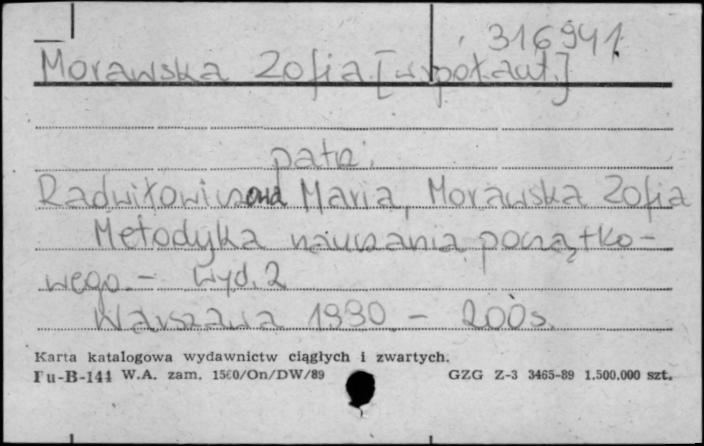 316941
Morawska Zofia [współaut.]
patrz:
Radwiłowiczowa Maria, Morawska Zofia
Metodyka nauczania początko-
wego. - Wyd. 2
Warszawa 1990 - 200 s.
Karta katalogowa wydawnictw ciągłych i zwartych.
Pu-B-144 W.A. zam. 1560/On/DW/89 GZG Z-3 3465-89 1.500.000 szt.